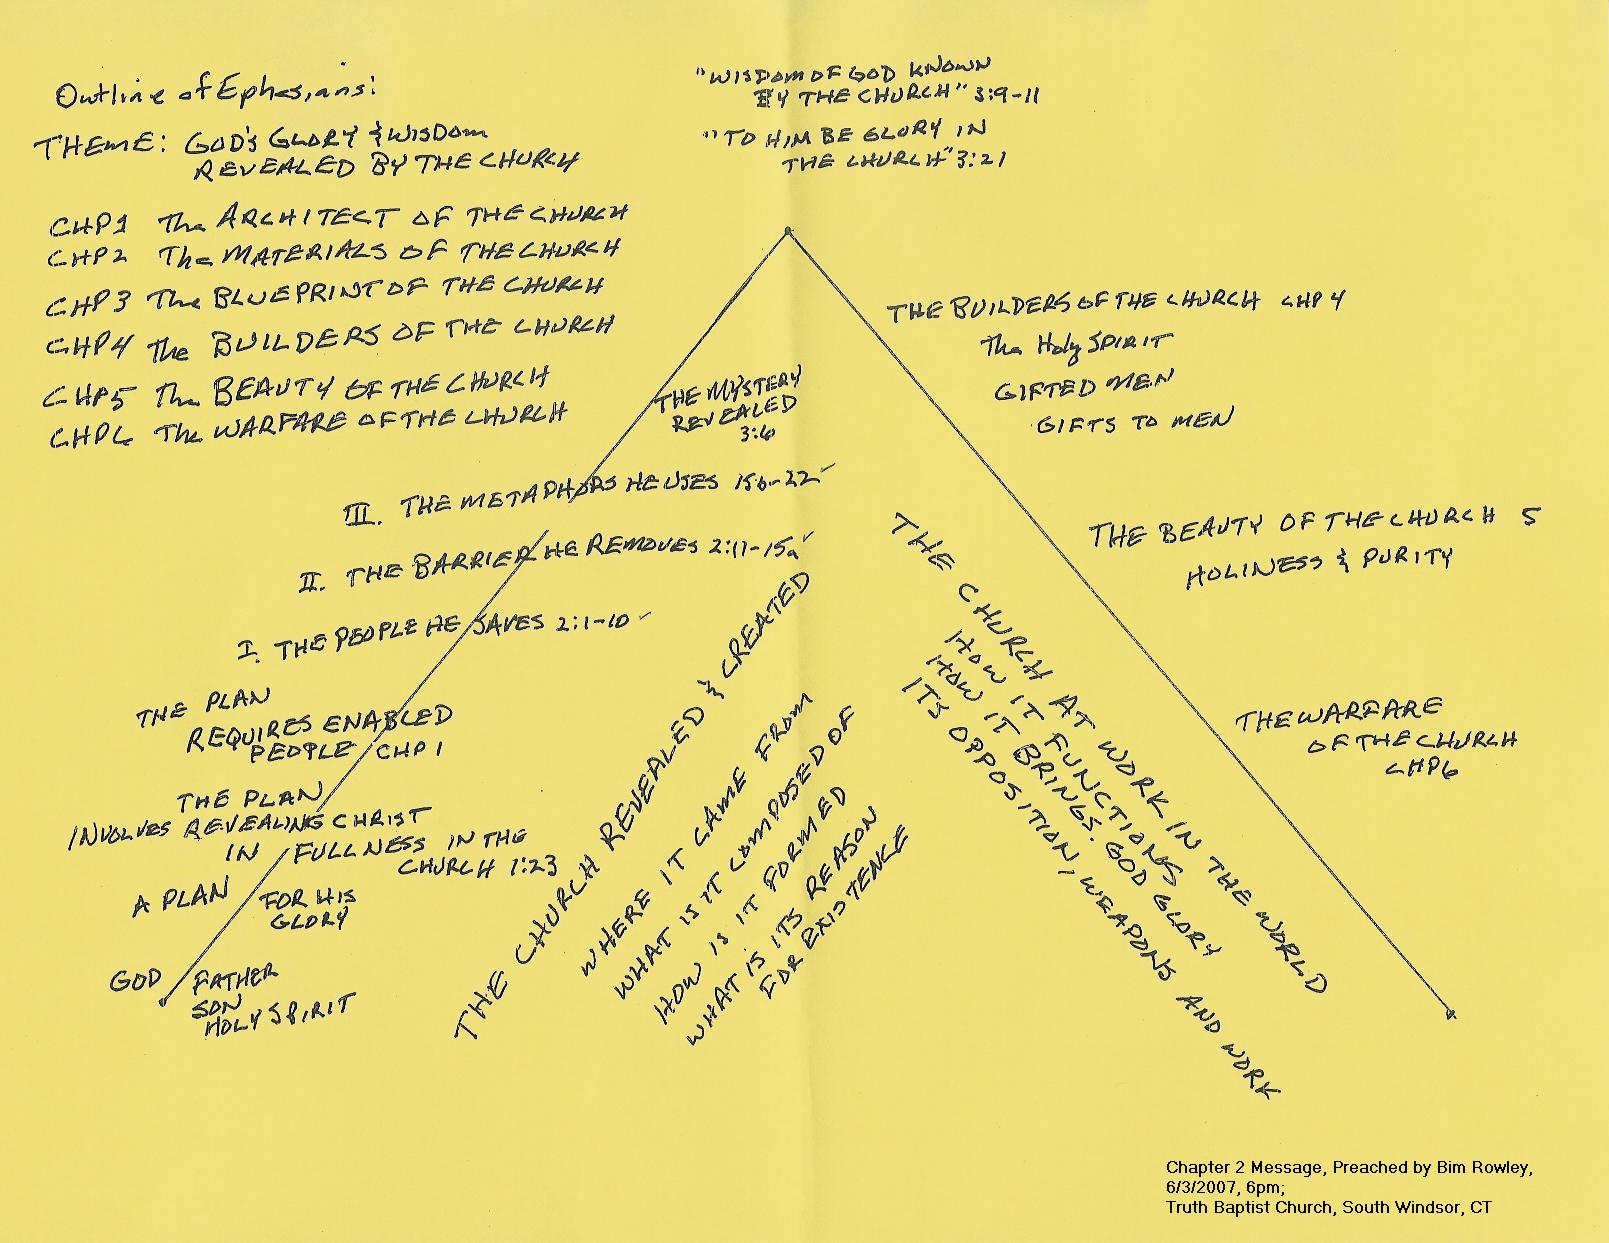 Outline of Ephesians:
THEME: GOD'S GLORY & WISDOM
REVEALED BY THE CHURCH
CHP1 The ARCHITECT OF THE CHURCH
CHP2 The MATERIALS OF THE CHURCH
CHP3 The BLUEPRINT OF THE CHURCH
CHP4 The BUILDERS OF THE CHURCH
CHP5 The BEAUTY OF THE CHURCH
CHP6 The WARFARE OF THE CHURCH
"WISDOM OF GOD KNOWN
BY THE CHURCH" 3:9-11
"TO HIM BE GLORY IN
THE CHURCH" 3:21
THE MYSTERY
REVEALED
3:6
III. THE METAPHORS HE USES 15b-22
II. THE BARRIER HE REMOVES 2:11-15a
I. THE PEOPLE HE SAVES 2:1-10
THE PLAN
REQUIRES ENABLED
PEOPLE CHP 1
THE PLAN
INVOLVES REVEALING CHRIST
IN FULLNESS IN THE
CHURCH 1:23
A PLAN FOR HIS
GLORY
GOD FATHER
SON
HOLY SPIRIT
THE CHURCH REVEALED & CREATED
WHERE IT CAME FROM
WHAT IS IT COMPOSED OF
HOW IS IT FORMED
WHAT IS ITS REASON
FOR EXISTENCE
THE CHURCH AT WORK IN THE WORLD
HOW IT FUNCTIONS
HOW IT BRINGS: GOD GLORY
ITS OPPOSITION, WEAPONS AND WORK
THE BUILDERS OF THE CHURCH CHP 4
The Holy SPIRIT
GIFTED MEN
GIFTS TO MEN
THE BEAUTY OF THE CHURCH 5
HOLINESS & PURITY
THE WARFARE
OF THE CHURCH
CHP6
Chapter 2 Message, Preached by Bim Rowley,
6/3/2007, 6pm;
Truth Baptist Church, South Windsor, CT